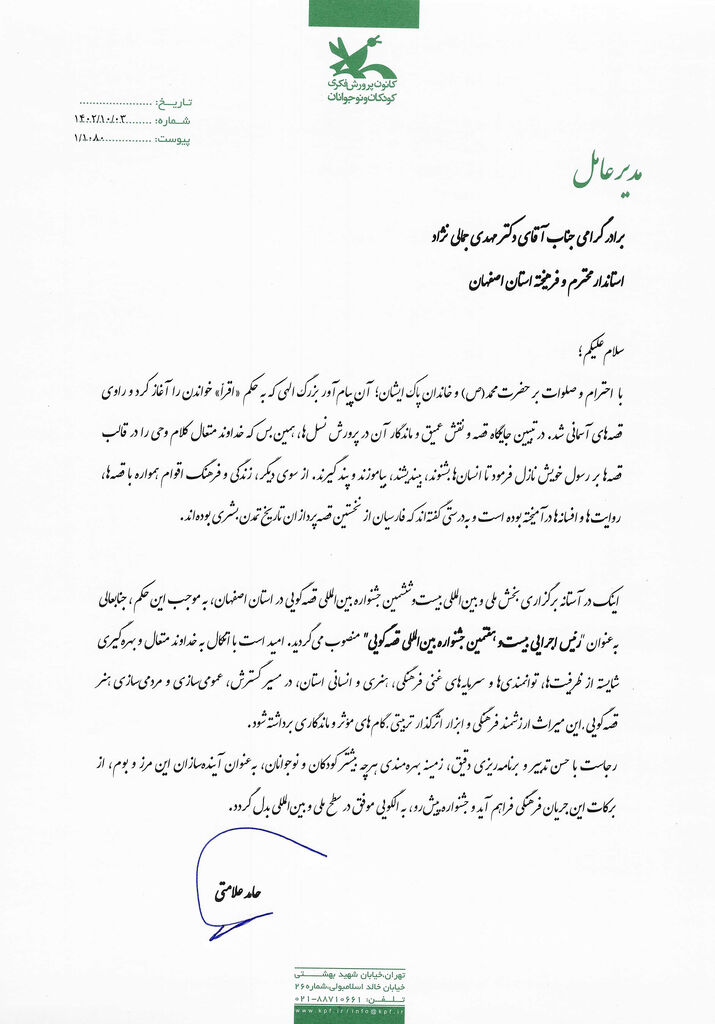 کانون پرورش فکری
کودکان و نوجوانان
تاریخ: ......................
شماره: ........۱۴۰۲/۱۰/۰۳
پیوست: ..............۱/۱۰۸۰
مدیر عامل
برادر گرامی جناب آقای دکتر مهدی جمالی نژاد
استاندار محترم و فرهیخته استان اصفهان
سلام علیکم؛
با احترام و صلوات بر حضرت محمد(ص) و خاندان پاک ایشان؛ آن پیام آور بزرگ الهی که به حکم «اقرأ» خواندن را آغاز کرد و راوی
قصه‌های آسمانی شد. در تبیین جایگاه قصه و نقش عمیق و ماندگار آن در پرورش نسل‌ها، همین بس که خداوند متعال کلام وحی را در قالب
قصه‌ها بر رسول خویش نازل فرمود تا انسان‌ها بشنوند، بیندیشند، بیاموزند و پند گیرند. از سوی دیگر، زندگی و فرهنگ اقوام همواره با قصه‌ها،
روایت‌ها و افسانه‌ها درآمیخته بوده است و به‌درستی گفته‌اند که فارسیان از نخستین قصه‌پردازان تاریخ تمدن بشری بوده‌اند.
اینک در آستانه برگزاری بخش ملی و بین‌المللی بیست و ششمین جشنواره بین‌المللی قصه‌گویی در استان اصفهان، به موجب این حکم، جنابعالی
به‌عنوان "رئیس اجرایی بیست و هفتمین جشنواره بین‌المللی قصه‌گویی" منصوب می‌گردید. امید است با اتکال به خداوند متعال و بهره‌گیری
شایسته از ظرفیت‌ها، توانمندی‌ها و سرمایه‌های غنی فرهنگی، هنری و انسانی استان، در مسیر گسترش، عمومی‌سازی و مردمی‌سازی هنر
قصه‌گویی، این میراث ارزشمند فرهنگی و ابزار اثرگذار تربیتی، گام‌های مؤثر و ماندگاری برداشته شود.
رجاست با حسن تدبیر و برنامه‌ریزی دقیق، زمینه بهره‌مندی هرچه بیشتر کودکان و نوجوانان، به‌عنوان آینده‌سازان این مرز و بوم، از
برکات این جریان فرهنگی فراهم آید و جشنواره پیش‌رو، به الگویی موفق در سطح ملی و بین‌المللی بدل گردد.
حامد علامتی
تهران، خیابان شهید بهشتی
خیابان خالد اسلامبولی، شماره ۲۶
تلفن: ۰۲۱-۸۸۷۱۰۶۶۱
www.kpf.ir/info@kpf.ir